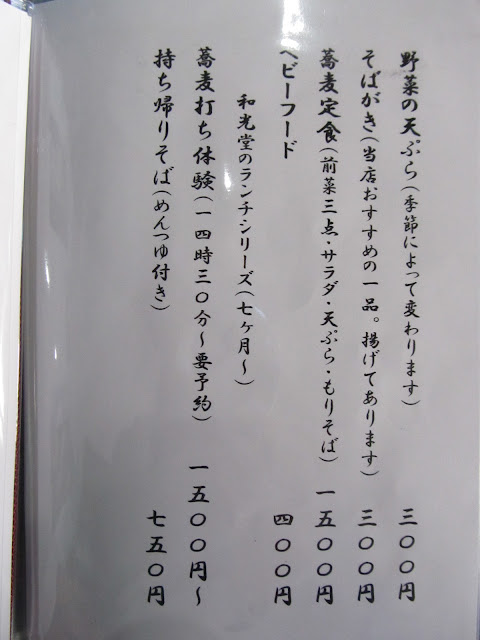 野菜の天ぷら(季節によって変わります) 三〇〇円
そばがき(当店おすすめの一品。揚げてあります) 三〇〇円
蕎麦定食(前菜三点・サラダ・天ぷら・もりそば) 一五〇〇円
ベビーフード 四〇〇円
和光堂のランチシリーズ(七ヶ月～)
蕎麦打ち体験(一四時三〇分～要予約) 一五〇〇円～
持ち帰りそば(めんつゆ付き) 七五〇円